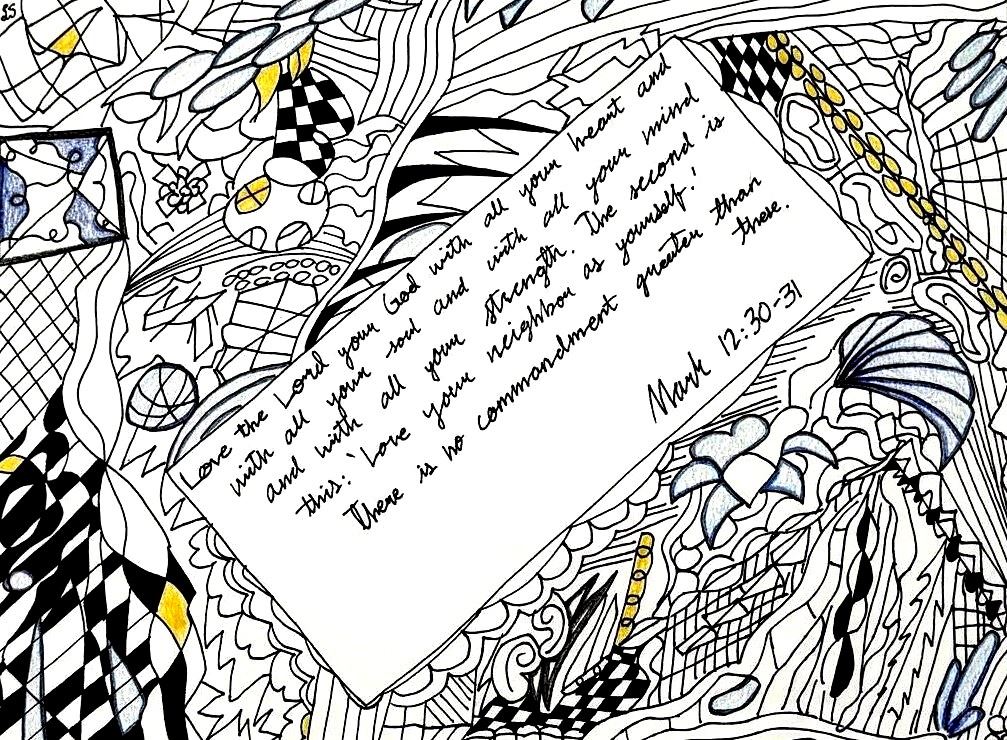 Love the Lord your God with all your heart and
with all your soul and with all your mind
and with all your strength. The second is
this: 'Love your neighbor as yourself.'
There is no commandment greater than
these.
Mark 12:30-31